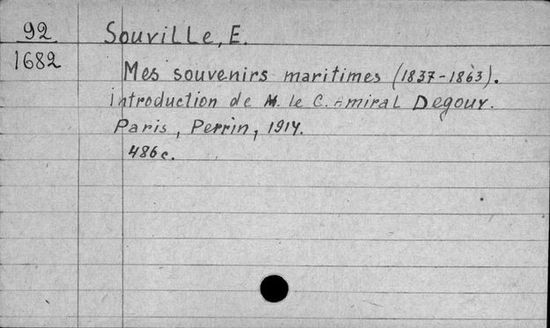 92
1682
Souville, E.
Mes souvenirs maritimes (1837-1863).
introduction de M. le C. amiral Degouy.
Paris, Perrin, 1914.
486c.